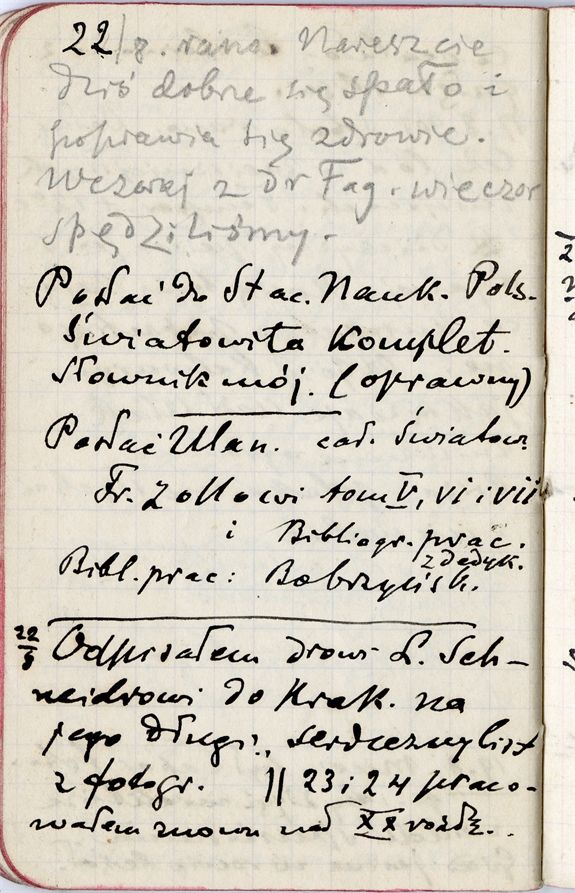 22/8. rano. Nareszcie
dziś dobrze się spało i
poprawia się zdrowie.
Wczoraj z Dr Fag. wieczor
spędziliśmy.
Posłać do Stac. Nauk. Pols.
Światowita Komplet.
Słownik mój. (oprawny)
Posłać Ułan. cał. Światow.
Fr. Zollowi tom V, VI i VII
i Bibliogr. prac.
z dedyk.
Bibl. prac: Bobrzyńsk.
22/8 Odpisałem drowi L. Sch-
neidrowi do Krak. na
jego długi, serdeczny list
z fotogr. || 23 i 24 praco-
wałem znowu nad XX rozdz.